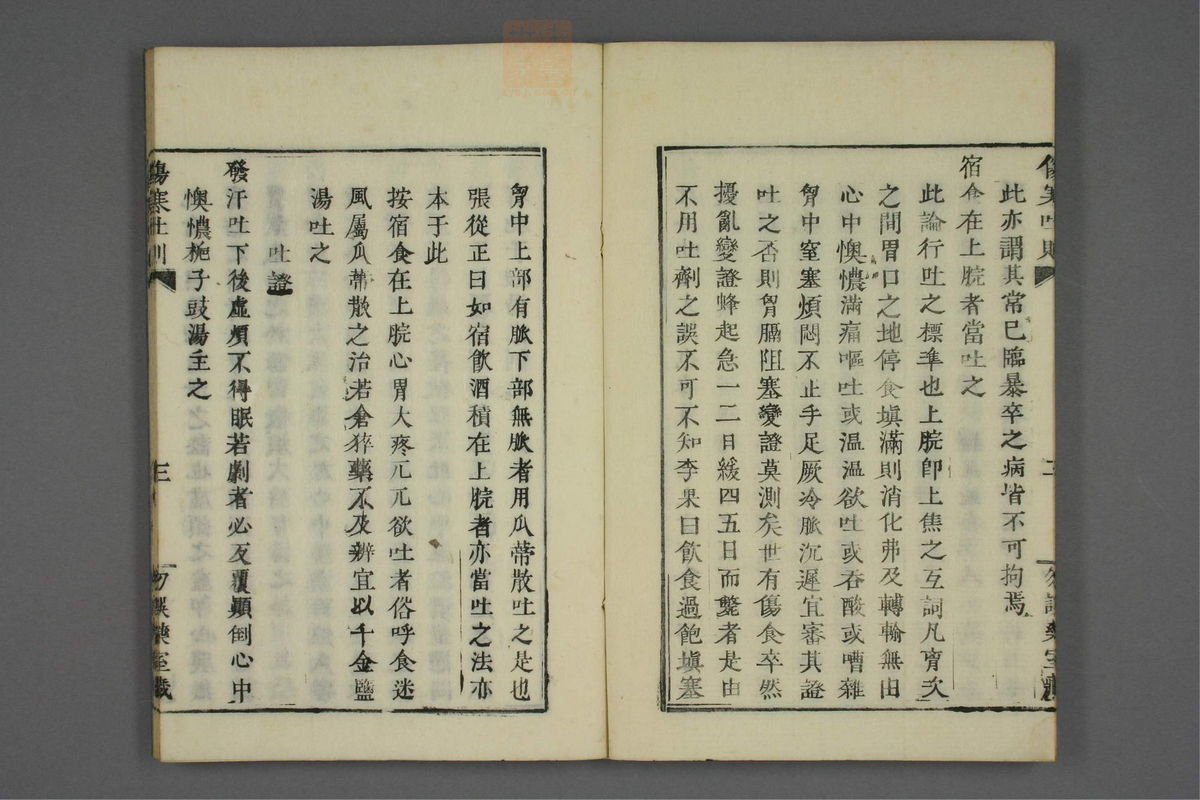 此亦謂其常已臨暴卒之病皆不可拘焉
宿食在上脘者當吐之
此論行吐之標準也上脘卽上焦之互詞凡胷次
之間胃口之地停食塡滿則消化弗及轉輸無由
心中懊憹滿痛嘔吐或温温欲吐或吞酸或嘈雜
胷中窒塞煩悶不止手足厥冷脈沉遲宜審其證
吐之否則胷膈阻塞變證莫測矣世有傷食卒然
擾亂變證蜂起急一二日緩四五日而斃者是由
不用吐劑之誤不可不知李杲曰飮食過飽塡塞
胷中上部有脈下部無脈者用瓜蒂散吐之是也
張從正曰如宿飮酒積在上脘者亦當吐之法亦
本于此
按宿食在上脘心胃大疼兀兀欲吐者俗呼食迷
風屬瓜蒂散之治若倉猝藥不及辨宜以千金鹽
湯吐之
吐證
發汗吐下後虛煩不得眠若劇者必反覆顚倒心中
懊憹梔子豉湯主之
傷寒吐則
三